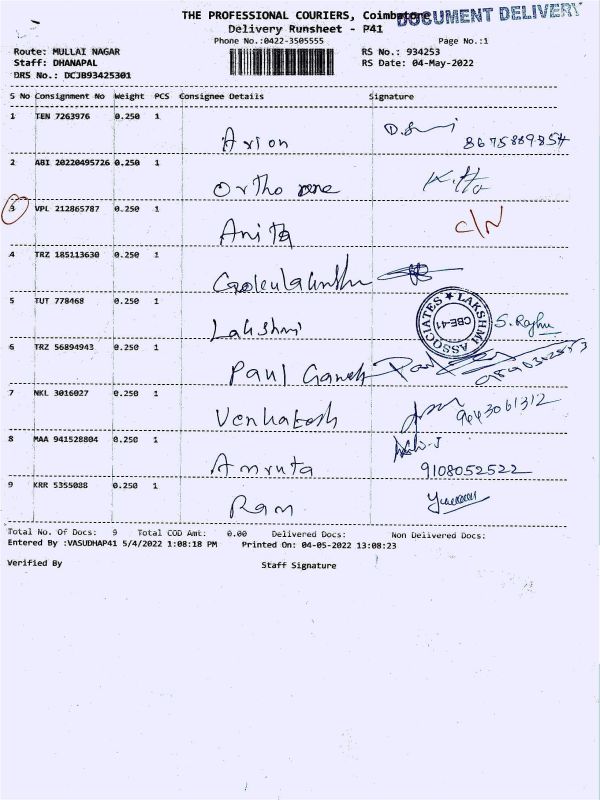 THE PROFESSIONAL COURIERS, Coimbatore
DOCUMENT DELIVERY
Delivery Runsheet - P41
Phone No.:0422-3505555 Page No.:1
Route: MULLAI NAGAR RS No.: 934253
Staff: DHANAPAL RS Date: 04-May-2022
DRS No.: DCJB93425301
S No Consignment No Weight PCS Consignee Details Signature
1 TEN 7263976 0.250 1
Axion 8675889854
2 ABI 20220495726 0.250 1
Ortho one
3 VPL 212865787 0.250 1
Anita C/N
4 TRZ 185113630 0.250 1
5 TUT 778468 0.250 1
Lakshmi S. Raghu
LAKSHMI ASSOCIATES ★ CBE-41
6 TRZ 56894943 0.250 1
Paul Ganesh
7 NKL 3016027 0.250 1
Venkatesh 9643061312
8 MAA 941528804 0.250 1
Amruta 9108052522
9 KRR 5355088 0.250 1
Ram
Total No. Of Docs: 9 Total COD Amt: 0.00 Delivered Docs: Non Delivered Docs:
Entered By :VASUDHAP41 5/4/2022 1:08:18 PM Printed On: 04-05-2022 13:08:23
Verified By Staff Signature